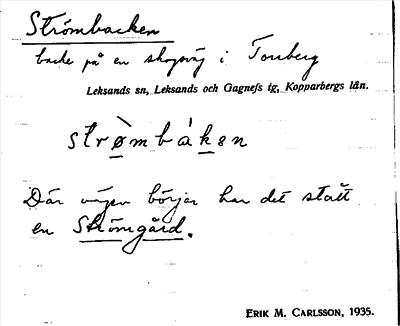 Strömbacken
backe på en skogsväg i Tunberg
Leksands sn, Leksands och Gagnefs tg, Kopparbergs län.
strø̀mbákən
Där vägen börjar har det stått
en Strömgård.
ERIK M. CARLSSON, 1935.